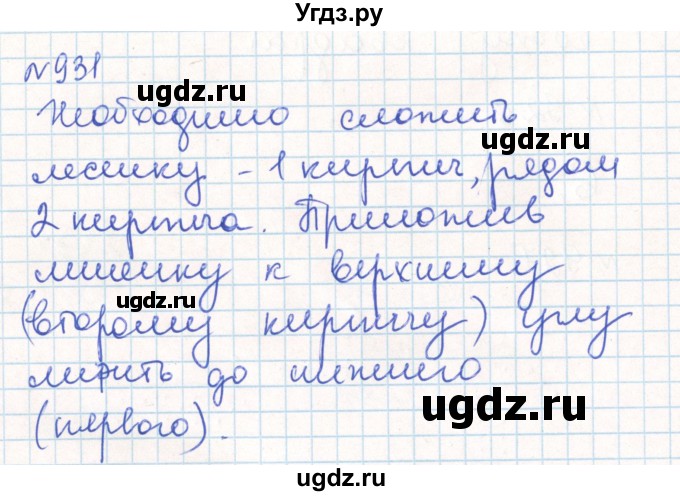 Угдз.ру
№931
ugdz.ru
Необходимо сложить
ugdz.ru
лесинку - 1 кирпич, рядом
2 кирпича. Приложив
линейку к верхнему
ugdz.ru
(второму кирпичу) углу
мерить до нижнего
ugdz.ru
(первого).
ugdz.ru